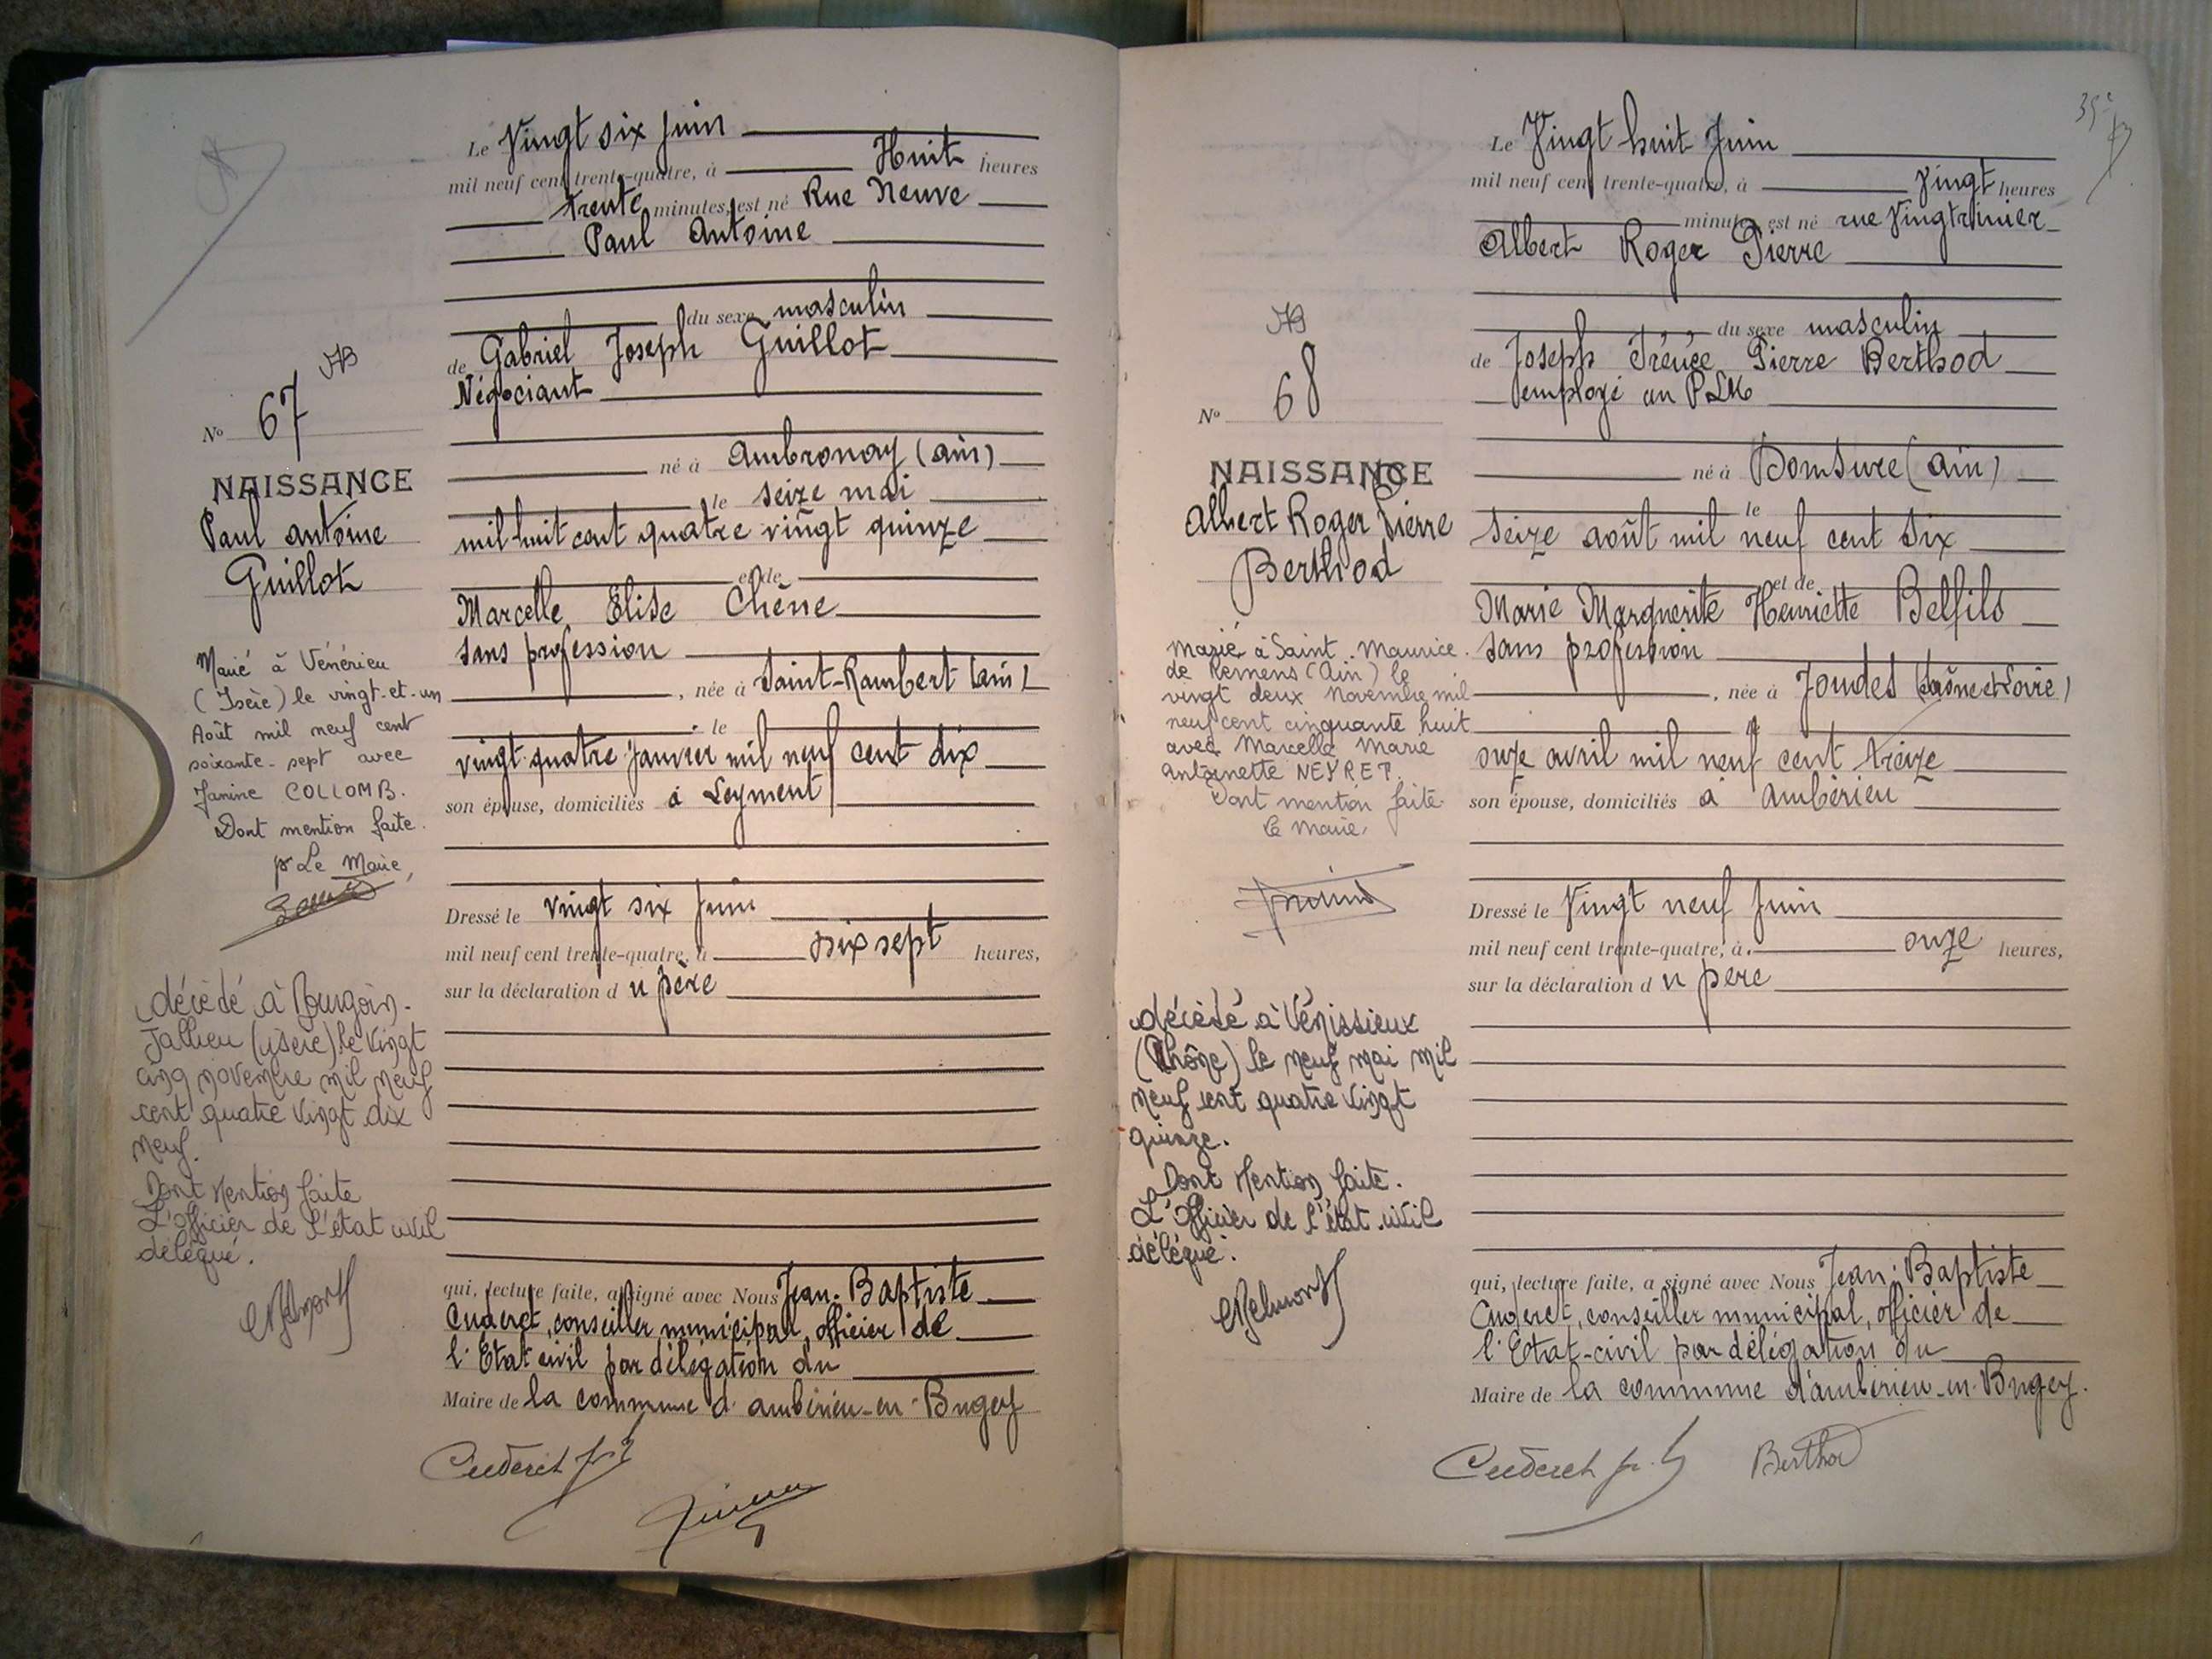 Le Vingt six Juin
mil neuf cent trente-quatre, à Huit heures
trente minutes, est né Rue Neuve
Paul Antoine
du sexe masculin
de Gabriel Joseph Guillot
Négociant
né à Ambronay (ain)
le seize mai
mil huit cent quatre vingt quinze
et de
Marcelle Elise Chêne
sans profession
, née à Saint-Rambert (ain)
le
vingt quatre Janvier mil neuf cent dix
son épouse, domiciliés à Leyment
Dressé le vingt six Juin
mil neuf cent trente-quatre, à dix sept heures,
sur la déclaration du père
qui, lecture faite, a signé avec Nous Jean-Baptiste
Cuderet, conseiller municipal, officier de
l'Etat civil par délégation du
Maire de la commune d'ambérieu-en-Bugey
Cuderet
AB
No 67
NAISSANCE
Paul Antoine
Guillot
Marié à Vénérieu
(Isère) le vingt-et-un
Août mil neuf cent
soixante-sept avec
Janine COLLOMB.
Dont mention faite.
pr Le Maire,
décédé à Bourgoin-
Jallieu (isère) le vingt
cinq novembre mil neuf
cent quatre vingt dix
neuf.
Dont Mention faite
L'officier de l'état civil
délégué.
35e
Le Vingt huit Juin
mil neuf cent trente-quatre, à vingt heures
minutes, est né rue Vingtrinier
Albert Roger Pierre
du sexe masculin
de Joseph Irénée Pierre Berthod
employé au PLM
né à Domsure (ain)
le
seize août mil neuf cent six
et de
Marie Marguerite Henriette Belfils
sans profession
, née à Joudes (Saône et Loire)
le
onze avril mil neuf cent treize
son épouse, domiciliés à Ambérieu
Dressé le Vingt neuf Juin
mil neuf cent trente-quatre, à onze heures,
sur la déclaration du père
qui, lecture faite, a signé avec Nous Jean-Baptiste
Cuderet, conseiller municipal, officier de
l'Etat-civil par délégation du
Maire de la commune d'ambérieu-en-Bugey.
Cuderet Berthod
AB
No 68
NAISSANCE
Albert Roger Pierre
Berthod
Marié à Saint Maurice
de Remens (Ain) le
vingt deux Novembre mil
neuf cent cinquante huit
avec Marcelle Marie
Antoinette NEYRET.
Dont mention faite
Le Maire,
décédé à Vénissieux
(Rhône) le neuf mai mil
neuf cent quatre vingt
quinze.
Dont Mention faite.
L'officier de l'état civil
délégué.